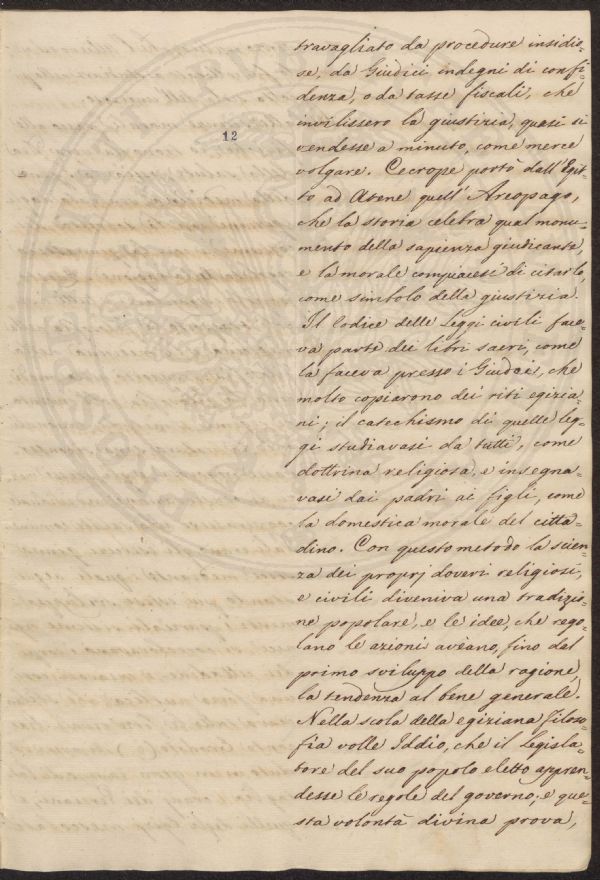 12
travagliato da procedure insidio=
se, da Giudici indegni di confi=
denza, o da tasse fiscali, che
invilissero la giustizia, quasi si
vendesse a minuto, come merce
volgare. Cecrope portò dall'Egit=
to ad Atene quell'Areopago,
che la storia celebra qual monu=
mento della sapienza giudicante,
e la morale compiacesi di citarlo,
come simbolo della giustizia.
Il Codice delle Leggi civili face=
va parte dei libri sacri, come
la faceva presso i Giudei, che
molto copiarono dei riti egizia=
ni; il catechismo di quelle leg=
gi studiavasi da tutti, come
dottrina religiosa, e insegna=
vasi dai padri ai figli, come
la domestica morale del citta=
dino. Con questo metodo la scien=
za dei proprj doveri religiosi,
e civili diveniva una tradizio=
ne popolare, e le idee, che rego=
lano le azioni avèano, fino dal
primo sviluppo della ragione,
la tendenza al bene generale.
Nella scola della egiziana filoso=
fia volle Iddio, che il legisla=
tore del suo popolo eletto appren=
desse le regole del governo, e que=
sta volontà divina prova,